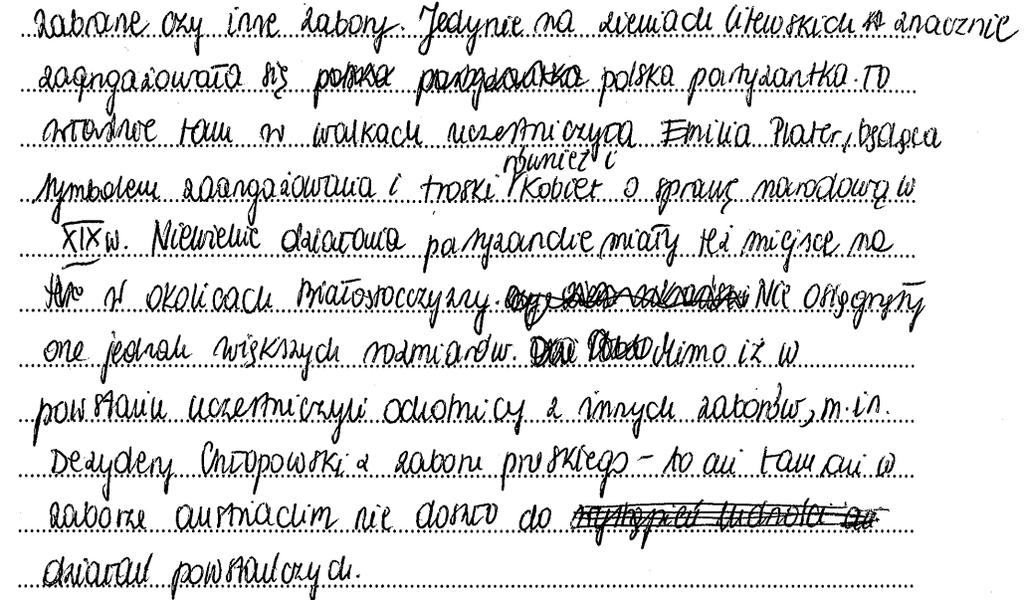 zabrane czy inne zabory. Jedynie na ziemiach litewskich znacznie
zaangażowała się polska partyzantka polska partyzantka. To
właśnie tam w walkach uczestniczyła Emilia Plater, będąca
również i
symbolem zaangażowania i troski kobiet o sprawę narodową w
XIX w. Niewielkie działania partyzanckie miały też miejsce na
w okolicach Białostocczyzny. Nie osięgnęły
one jednak większych rozmiarów. Mimo iż w
powstaniu uczestniczyli ochotnicy z innych zaborów, m.in.
Dezydery Chłopowski z zaboru pruskiego - to ani tam, ani w
zaborze austriackim nie doszło do wystąpień ludności
działań powstańczych.